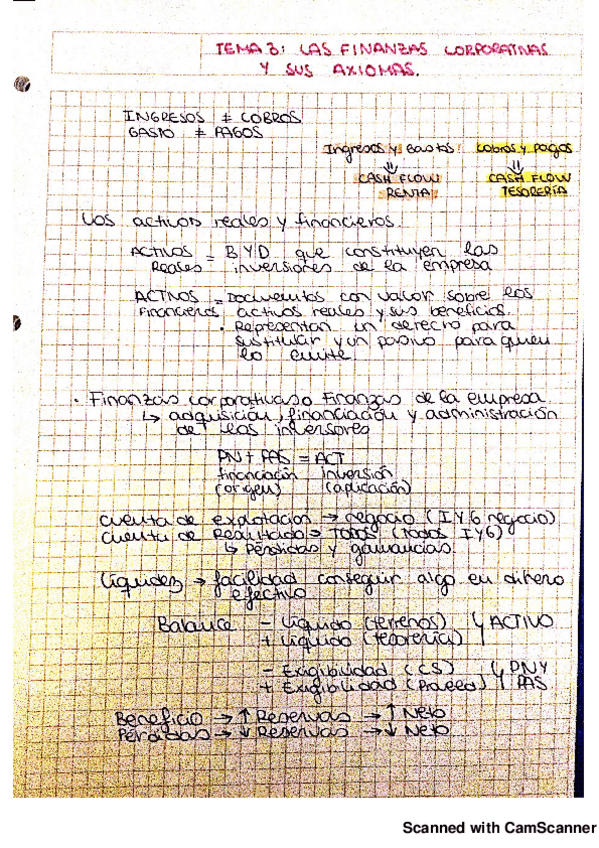 TEMA 3: LAS FINANZAS CORPORATIVAS
Y SUS AXIOMAS.
INGRESOS ≠ COBROS
GASTO ≠ PAGOS
Ingresos y Gastos Cobros y Pagos
⇓ ⇓
CASH FLOW CASH FLOW
RENTA TESORERÍA
Los activos reales y financieros.
ACTIVOS = B Y D que constituyen las
Reales inversiones de la empresa
ACTIVOS = Documentos con valor sobre los
Financieros activos reales y sus beneficios.
• Representan un derecho para
su titular y un pasivo para quien
lo emite.
• Finanzas corporativas o Finanzas de la empresa
↳ adquisición, financiación y administración
de los inversores
PN + PAS = ACT
financiación inversión
(origen) (aplicación)
cuenta de explotación → negocio (I Y G negocio)
cuenta de Resultado → TODOS (Todos I Y G)
↳ Pérdidas y ganancias.
Liquidez → facilidad conseguir algo en dinero
efectivo
Balance - Líquido (terrenos) ACTIVO
+ Líquido (tesorería)
- Exigibilidad (CS) PN Y
+ Exigibilidad (Proveed) PAS
Beneficio → ↑ Reservas → ↑ Neto
Pérdidas → ↓ Reservas → ↓ Neto
Scanned with CamScanner